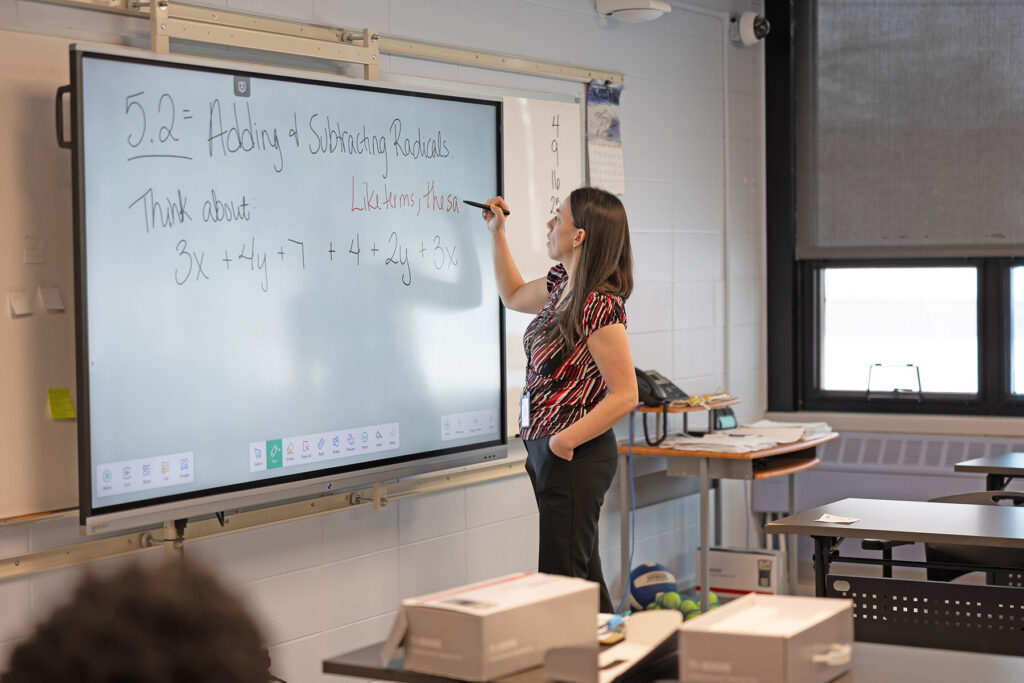 5.2= Adding & Subtracting Radicals.
Think about:
Like terms; the sa
3x + 4y + 7 + 4 + 2y + 3x
4
9
16
25